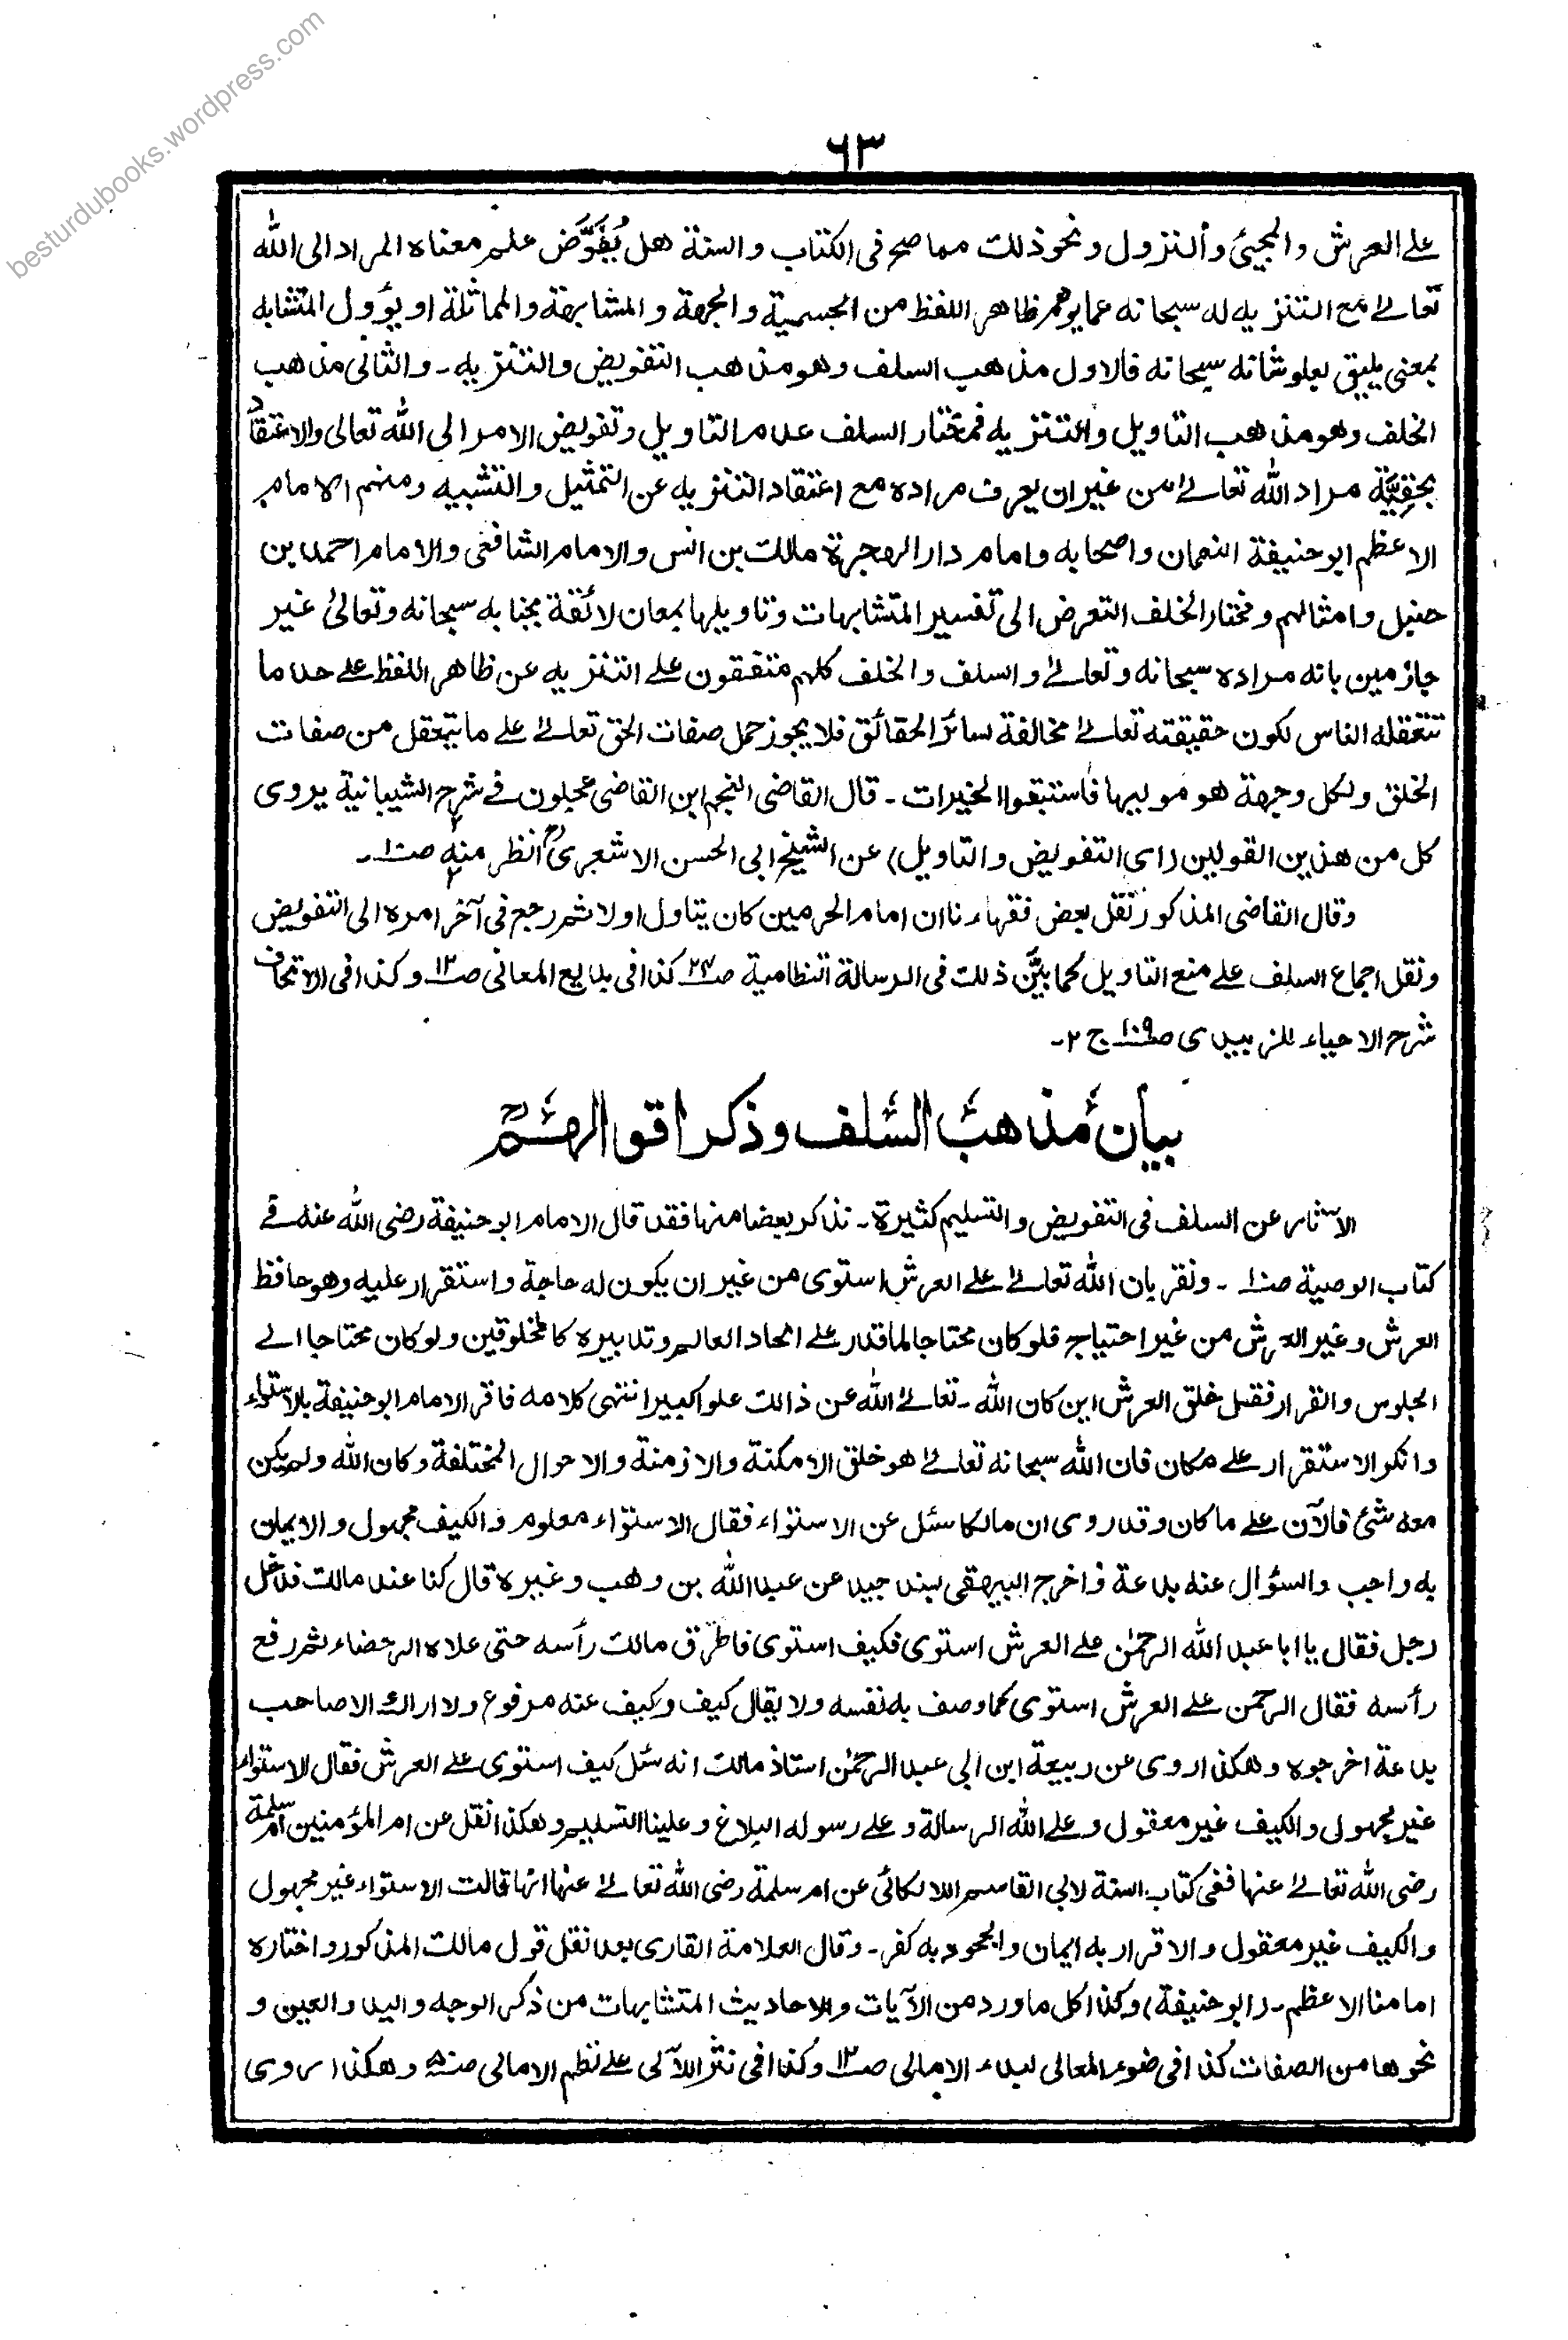 besturdubooks.wordpress.com
٦٣
على العرش والمجيئ وألنزول ونحو ذلك مما صح فى الكتاب والسنة هل يُفَوَّض علم معناه المراد الى الله
تعالى مع التنزيه له سبحانه عما يوهم ظاهر اللفظ من الجسمية والجهة والمشابهة والمماثلة او يؤول المتشابه
بمعنى يليق بعلو شانه سبحانه فالاول مذهب السلف وهو مذهب التفويض والتنزيه ـ والثانى مذهب
الخلف وهو مذهب التاويل والتنزيه فمختار السلف عدم التاويل وتفويض الامر الى الله تعالى والاعتقاد
بحقِيّة مراد الله تعالى من غير ان يعرف مراده مع اعتقاد التنزيه عن التمثيل والتشبيه ومنهم الامام
الاعظم ابو حنيفة النعمان واصحابه وامام دار الهجرة مالك بن انس والامام الشافعى والامام احمد بن
حنبل وامثالهم ومختار الخلف التعرض الى تفسير المتشابهات وتاويلها بمعان لائقة بجنابه سبحانه وتعالىٰ غير
جازمين بانه مراده سبحانه وتعالى والسلف والخلف كلهم متفقون على التنزيه عن ظاهر اللفظ على حد ما
تتعقله الناس لكون حقيقته تعالى مخالفة لسائر الحقائق فلا يجوز حمل صفات الحق تعالى على ما يتعقل من صفات
الخلق ولكل وجهة هو موليها فاستبقوا الخيرات ـ قال القاضى النجم ابن القاضى عجلون فى شرح الشيبانية يروى
كل من هذين القولين (اى التفويض والتاويل) عن الشيخ ابى الحسن الاشعرىؒ انظر منه صـ١٠ ـ
وقال القاضى المذكور نقل بعض فقهاءنا ان امام الحرمين كان يتاول اولا ثم رجع فى آخر امره الى التفويض
ونقل اجماع السلف على منع التاويل كما بيّن ذلك فى الرسالة النظامية صـ٢٣ كذا فى بدايع المعانى صـ١٣ وكذا فى الاتحاف
شرح الاحياء للزبيدى صـ١٠٩ ج ٢ـ
بيان مذهب السلف وذكر اقوالهم
الآثار عن السلف فى التفويض والتسليم كثيرة ـ نذكر بعضا منها فقد قال الامام ابو حنيفة رضى الله عنه فى
كتاب الوصية صـ١٠ ـ ونقر بان الله تعالى على العرش استوى من غير ان يكون له حاجة واستقرار عليه وهو حافظ
العرش وغير العرش من غير احتياج فلو كان محتاجا لما قدر على ايجاد العالم وتدبيره كالمخلوقين ولو كان محتاجا الى
الجلوس والقرار فقبل خلق العرش اين كان الله ـ تعالى الله عن ذالك علوا كبيرا انتهى كلامه فاقر الامام ابو حنيفة بالاستواء
وانكر الاستقرار على مكان فان الله سبحانه تعالى هو خلق الامكنة والازمنة والاحوال المختلفة وكان الله ولم يكن
معه شئ فالآن على ما كان وقد روى ان مالكا سئل عن الاستواء فقال الاستواء معلوم والكيف مجهول والايمان
به واجب والسؤال عنه بدعة واخرج البيهقى بسند جيد عن عبد الله بن وهب وغيره قال كنا عند مالك فدخل
رجل فقال يا ابا عبد الله الرحمٰن على العرش استوى فكيف استوى فاطرق مالك رأسه حتى علاه الرحضاء ثم رفع
رأسه فقال الرحمن على العرش استوى كما وصف به نفسه ولا يقال كيف وكيف عنه مرفوع ولا اراك الا صاحب
بدعة اخرجوه وهكذا روى عن ربيعة ابن ابى عبد الرحمٰن استاذ مالك انه سئل كيف استوى على العرش فقال الاستواء
غير مجهول والكيف غير معقول وعلى الله الرسالة وعلى رسوله البلاغ وعلينا التسليم وهكذا نقل عن ام المؤمنين ام سلمة
رضى الله تعالى عنها ففى كتاب السنة لابى القاسم اللالكائى عن ام سلمة رضى الله تعالى عنها انها قالت الاستواء غير مجهول
والكيف غير معقول والاقرار به ايمان والجحود به كفر ـ وقال العلامة القارى بعد نقل قول مالك المذكور واختاره
امامنا الاعظم ـ (ابو حنيفة) وكذا كل ما ورد من الآيات والاحاديث المتشابهات من ذكر الوجه واليد والعين و
نحوها من الصفات كذا فى ضوء المعالى لبدء الامالى صـ١٣ وكذا فى نثر اللآلى على نظم الامالى وهكذا روى